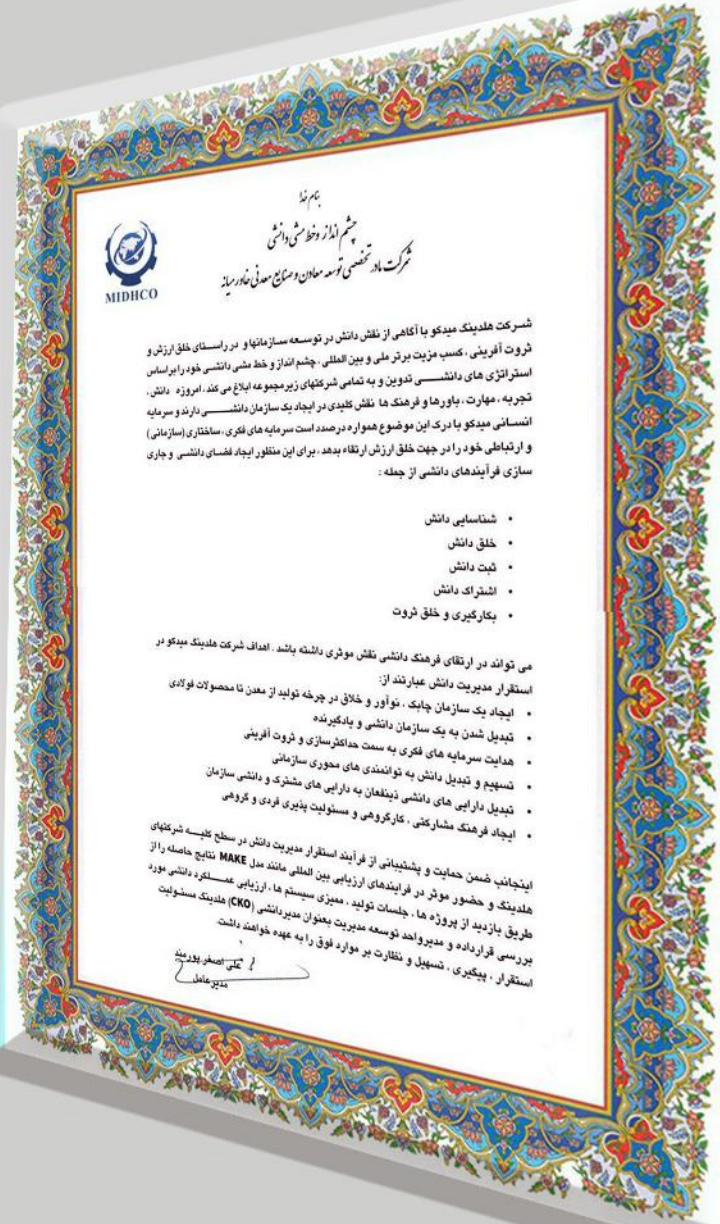 بنام خدا
چشم انداز و خط مشی دانشی
شرکت مادر تخصصی توسعه معادن و صنایع معدنی خاورمیانه
MIDHCO
شرکت هلدینگ میدکو با آگاهی از نقش دانش در توسعه سازمانها و در راستای خلق ارزش و
ثروت آفرینی ، کسب مزیت برتر ملی و بین المللی ، چشم انداز و خط مشی دانشی خود را براساس
استراتژی های دانشی تدوین و به تمامی شرکتهای زیرمجموعه ابلاغ می کند . امروزه دانش ،
تجربه ، مهارت ، باورها و فرهنگ ها نقش کلیدی در ایجاد یک سازمان دانشی دارند و سرمایه
انسانی میدکو با درک این موضوع همواره درصدد است سرمایه های فکری ، ساختاری (سازمانی )
و ارتباطی خود را در جهت خلق ارزش ارتقاء بدهد ، برای این منظور ایجاد فضای دانشی و جاری
سازی فرآیندهای دانشی از جمله :
• شناسایی دانش
• خلق دانش
• ثبت دانش
• اشتراک دانش
• بکارگیری و خلق ثروت
می تواند در ارتقای فرهنگ دانشی نقش موثری داشته باشد . اهداف شرکت هلدینگ میدکو در
استقرار مدیریت دانش عبارتند از:
• ایجاد یک سازمان چابک ، نوآور و خلاق در چرخه تولید از معدن تا محصولات فولادی
• تبدیل شدن به یک سازمان دانشی و یادگیرنده
• هدایت سرمایه های فکری به سمت حداکثرسازی و ثروت آفرینی
• تسهیم و تبدیل دانش به توانمندی های محوری سازمانی
• تبدیل دارایی های دانشی ذینفعان به دارایی های مشترک و دانشی سازمان
• ایجاد فرهنگ مشارکتی ، کارگروهی و مسئولیت پذیری فردی و گروهی
اینجانب ضمن حمایت و پشتیبانی از فرآیند استقرار مدیریت دانش در سطح کلیه شرکتهای
هلدینگ و حضور موثر در فرایندهای ارزیابی بین المللی مانند مدل MAKE نتایج حاصله را از
طریق بازدید از پروژه ها ، جلسات تولید ، ممیزی سیستم ها ، ارزیابی عملکرد دانشی مورد
بررسی قرارداده و مدیرواحد توسعه مدیریت بعنوان مدیردانشی (CKO) هلدینگ مسئولیت
استقرار ، پیگیری ، تسهیل و نظارت بر موارد فوق را به عهده خواهند داشت.
علی اصغر پورمند
مدیرعامل